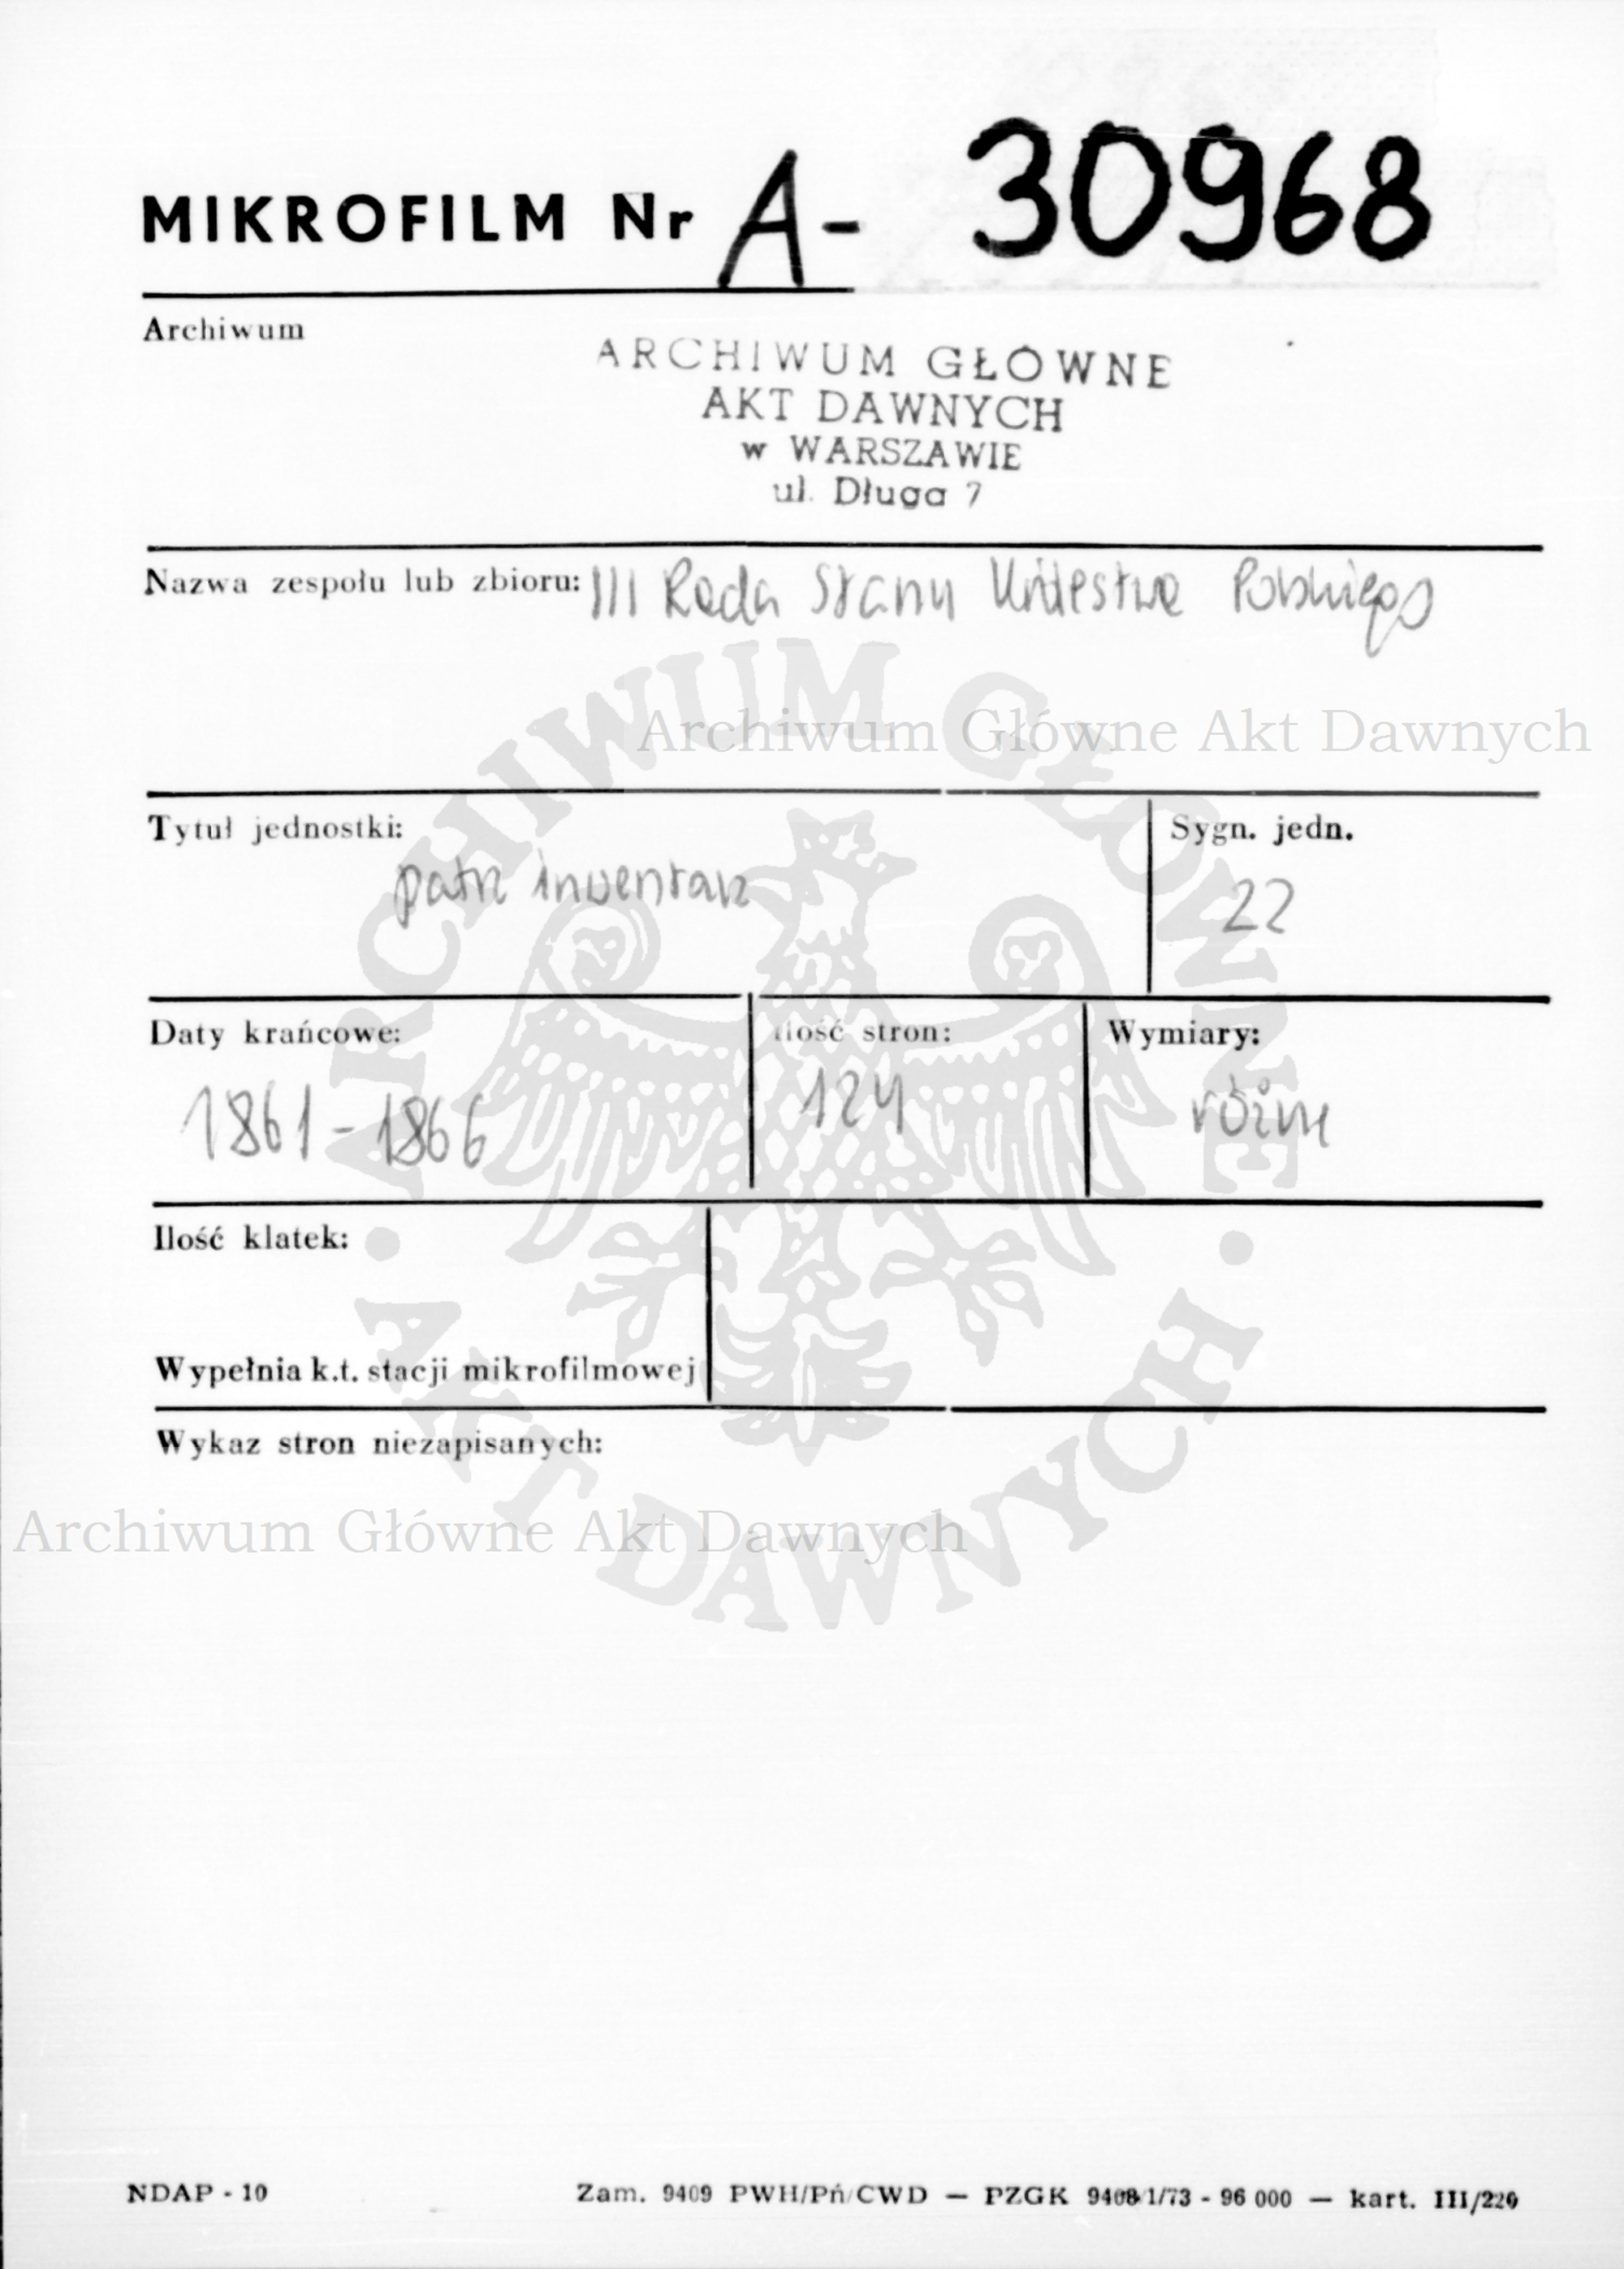 MIKROFILM Nr A- 30968
Archiwum
ARCHIWUM GŁÓWNE
AKT DAWNYCH
w WARSZAWIE
ul. Długa 7
Nazwa zespołu lub zbioru: III Rada Stanu Królestwa Polskiego
Archiwum Główne Akt Dawnych
Tytuł jednostki:
patrz inwentarz
Sygn. jedn.
22
Daty krańcowe:
1861-1866
Ilość stron:
124
Wymiary:
różne
Ilość klatek:
Wypełnia k.t. stacji mikrofilmowej
Wykaz stron niezapisanych:
Archiwum Główne Akt Dawnych
ARCHIWUM GŁÓWNE
· AKT DAWNYCH ·
NDAP - 10
Zam. 9409 PWH/Pń/CWD — PZGK 9408 1/73 - 96 000 — kart. III/220